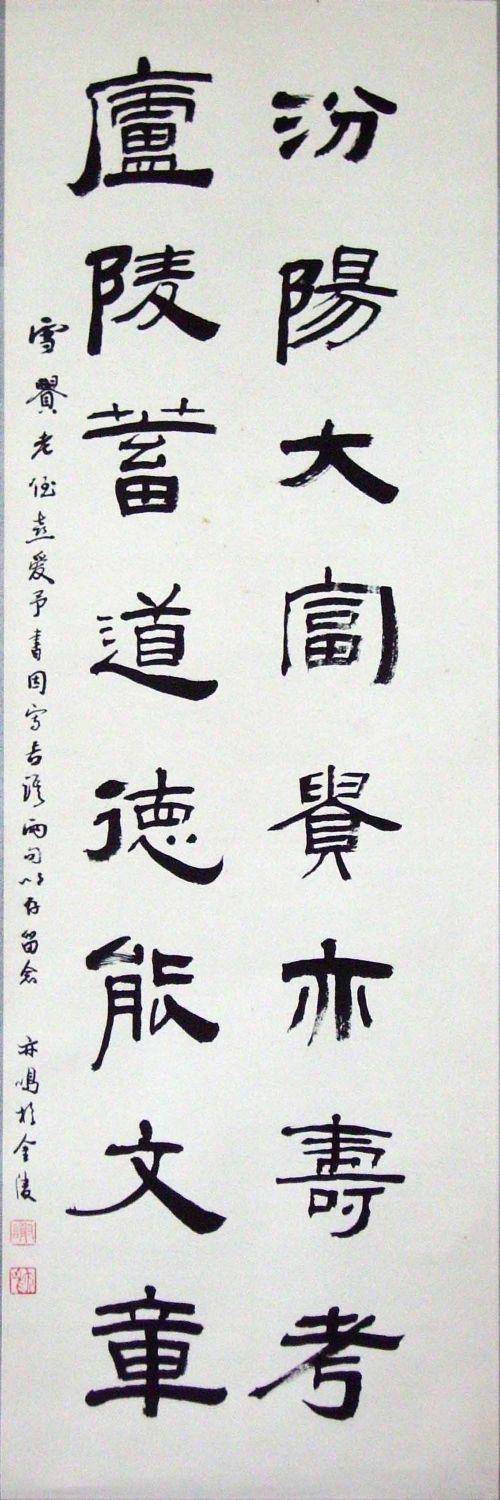 汾陽大富貴亦壽考
廬陵蓄道德能文章
雪貴老侄喜愛予書因寄古語兩句以存留念 亦鳴於金陵